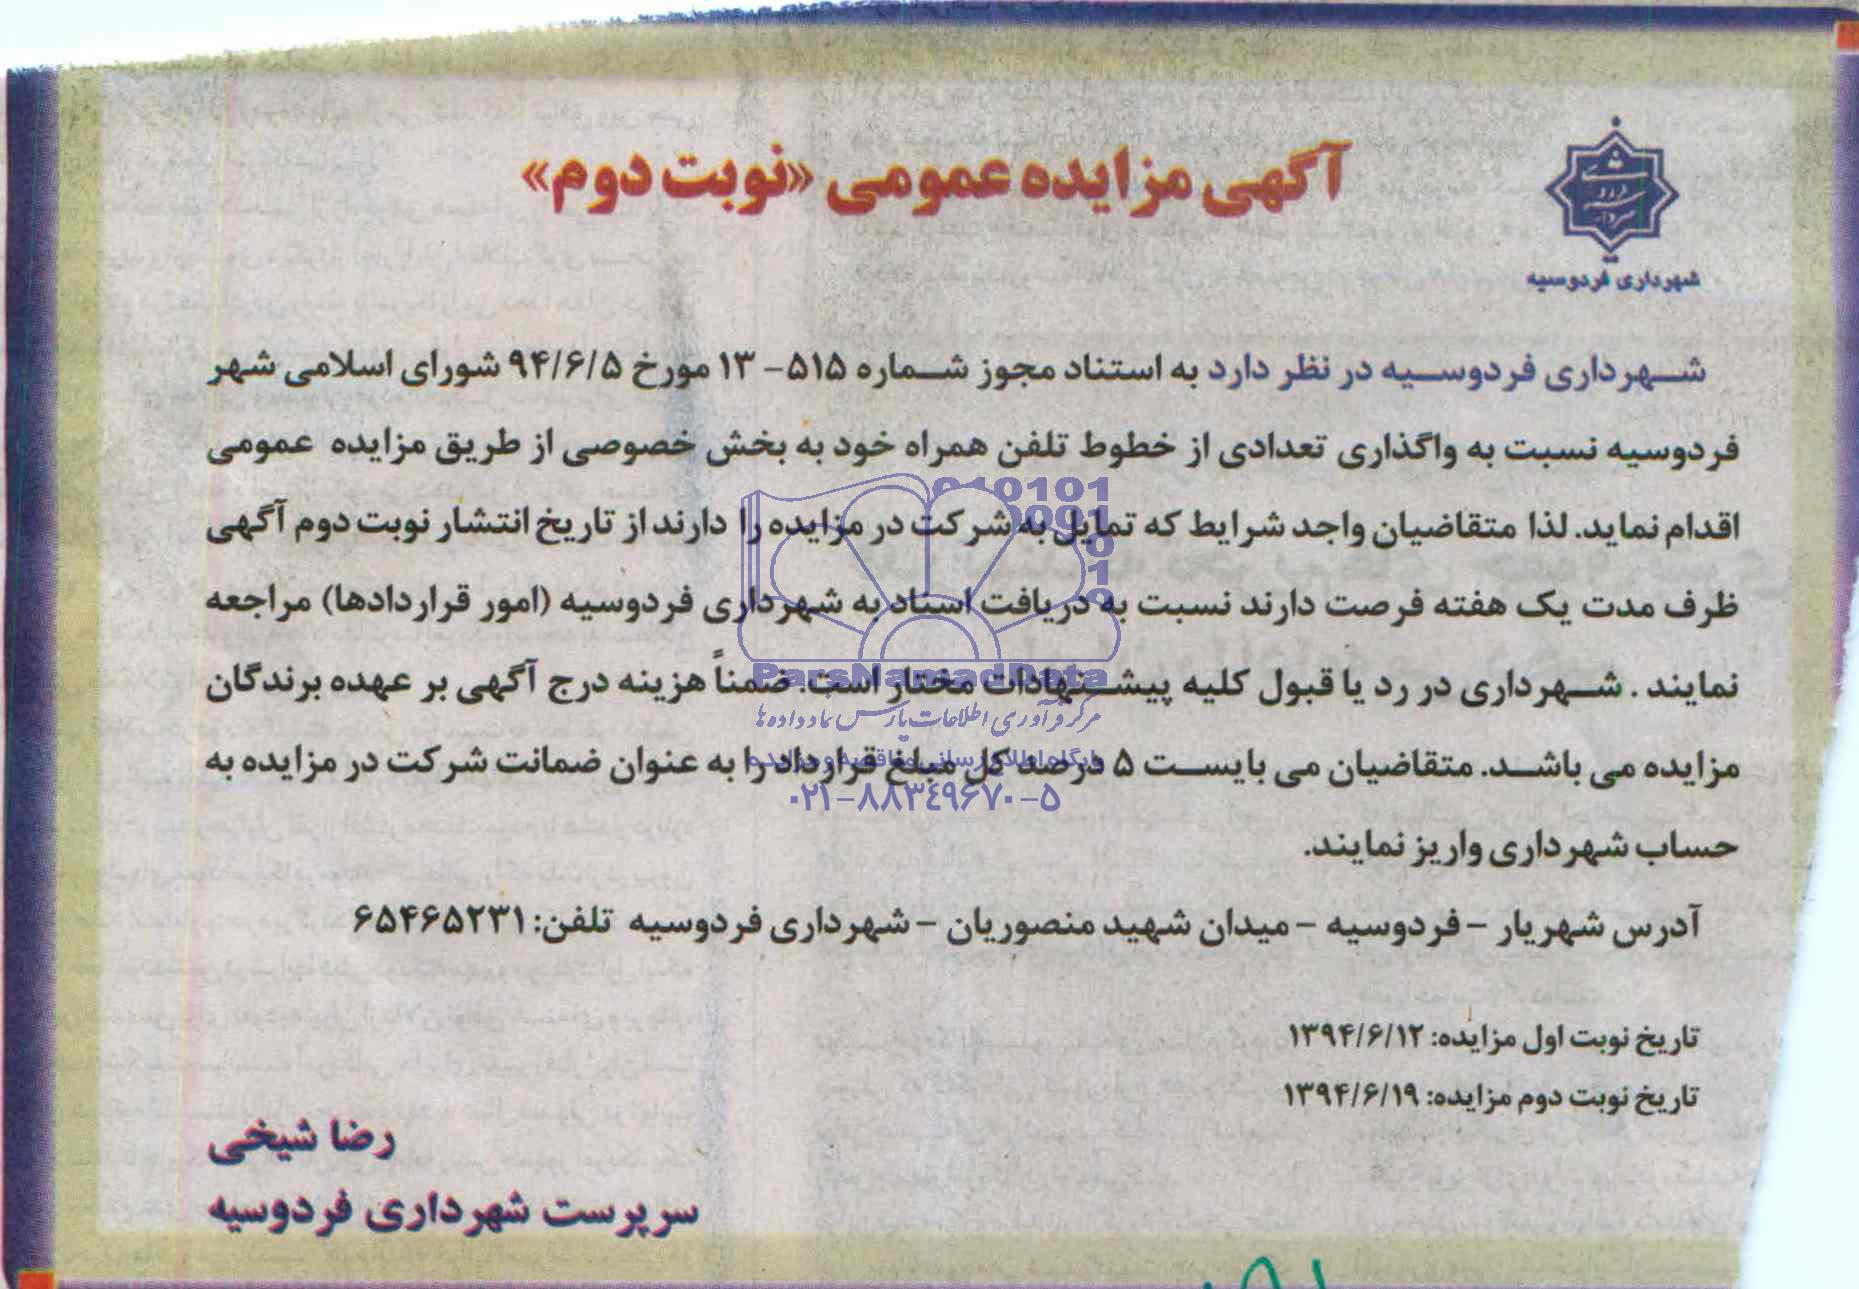 آگهی مزایده عمومی «نوبت دوم»
شهرداری فردوسیه
شهرداری فردوسیه در نظر دارد به استناد مجوز شماره ۵۱۵- ۱۳ مورخ ۹۴/۶/۵ شورای اسلامی شهر
فردوسیه نسبت به واگذاری تعدادی از خطوط تلفن همراه خود به بخش خصوصی از طریق مزایده عمومی
اقدام نماید. لذا متقاضیان واجد شرایط که تمایل به شرکت در مزایده را دارند از تاریخ انتشار نوبت دوم آگهی
ظرف مدت یک هفته فرصت دارند نسبت به دریافت اسناد به شهرداری فردوسیه (امور قراردادها) مراجعه
نمایند . شهرداری در رد یا قبول کلیه پیشنهادات مختار است. ضمناً هزینه درج آگهی بر عهده برندگان
مزایده می باشد. متقاضیان می بایست ۵ درصد کل مبلغ قرارداد را به عنوان ضمانت شرکت در مزایده به
حساب شهرداری واریز نمایند.
آدرس شهریار - فردوسیه - میدان شهید منصوریان - شهرداری فردوسیه تلفن: ۶۵۴۶۵۲۳۱
تاریخ نوبت اول مزایده: ۱۳۹۴/۶/۱۲
تاریخ نوبت دوم مزایده: ۱۳۹۴/۶/۱۹
رضا شیخی
سرپرست شهرداری فردوسیه
ParsNamadData
مرکز فرآوری اطلاعات پارس نماد داده ها
پایگاه اطلاع رسانی مناقصه و مزایده
۰۲۱-۸۸۳۴۹۶۷۰-۵